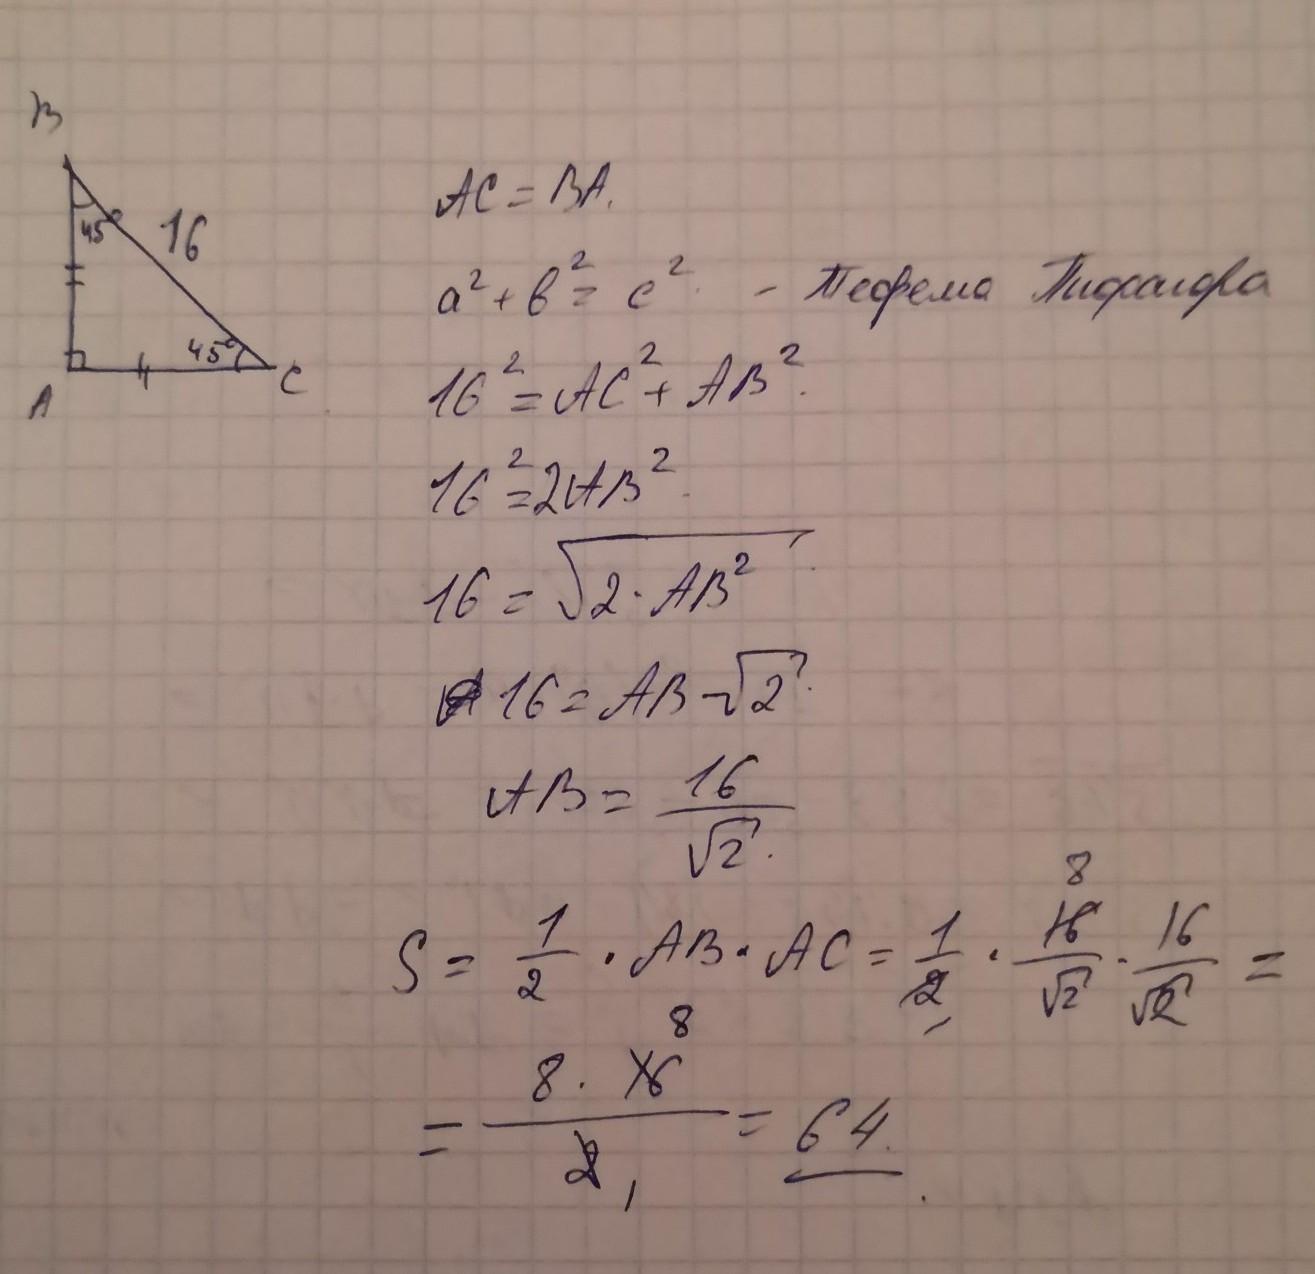 B
45°
16
45°
A
C
AC = BA.
a² + b² = c². - Теорема Пифагора
16² = AC² + AB².
16² = 2AB².
16 = √2·AB²
16 = AB √2.
AB = 16/√2.
S = 1/2 · AB · AC = 1/2 · 16/√2 · 16/√2 =
8
8
= 8 · 16/2 = 64.